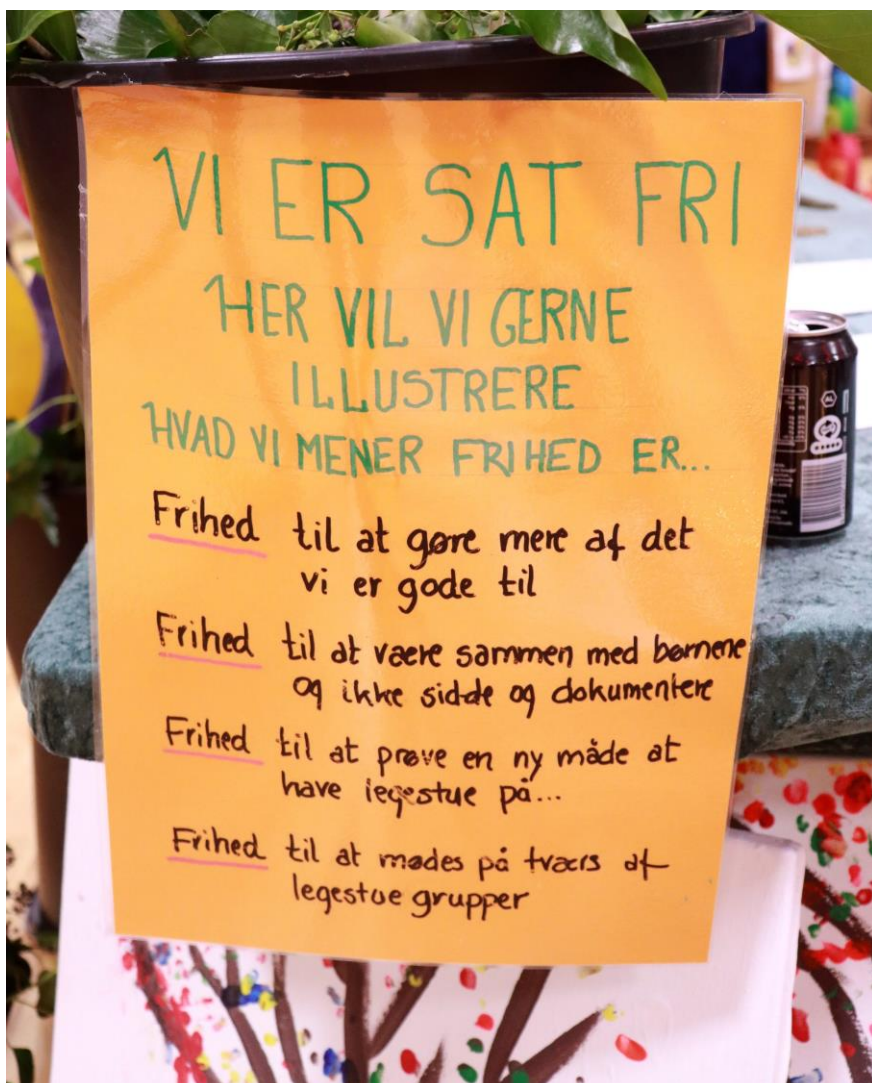 VI ER SAT FRI
HER VIL VI GERNE
ILLUSTRERE
HVAD VI MENER FRIHED ER...
Frihed til at gøre mere af det
vi er gode til
Frihed til at være sammen med børnene
og ikke sidde og dokumentere
Frihed til at prøve en ny måde at
have legestue på...
Frihed til at mødes på tværs af
legestue grupper